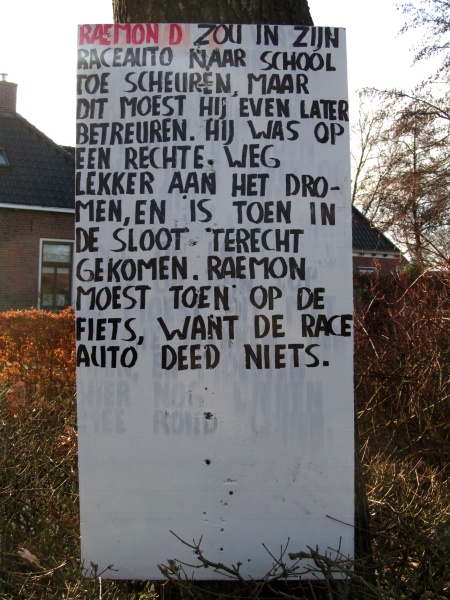 RAEMON D ZOU IN ZIJN
RACEAUTO NAAR SCHOOL
TOE SCHEUREN, MAAR
DIT MOEST HIJ EVEN LATER
BETREUREN. HIJ WAS OP
EEN RECHTE. WEG
LEKKER AAN HET DRO-
MEN, EN IS TOEN IN
DE SLOOT TERECHT
GEKOMEN. RAEMON
MOEST TOEN OP DE
FIETS, WANT DE RACE
AUTO DEED NIETS.
HIER NOG
MEE ROND